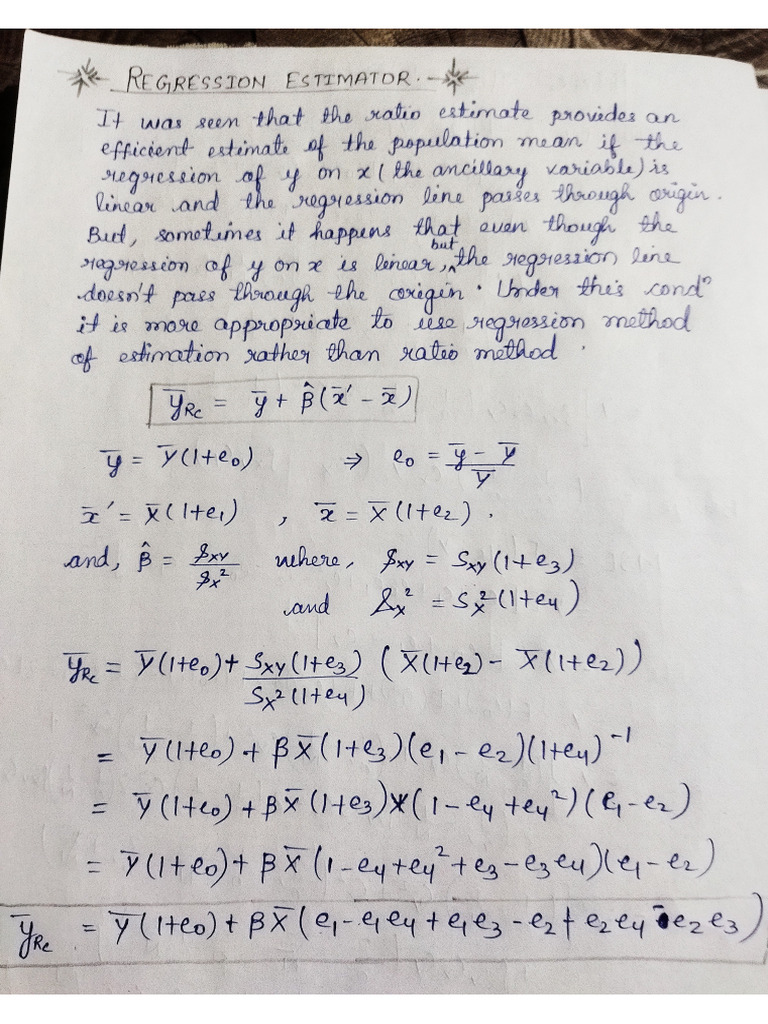 REGRESSION ESTIMATOR.
It was seen that the ratio estimate provides an
efficient estimate of the population mean if the
regression of y on x (the ancillary variable) is
linear and the regression line passes through origin.
But, sometimes it happens that even though the
regression of y on x is linear, but the regression line
doesn't pass through the origin. Under this condⁿ
it is more appropriate to use regression method
of estimation rather than ratio method.
ȳ_Rc = ȳ + β̂(x̄' - x̄)
ȳ = Ȳ(1+e₀) ⇒ e₀ = (ȳ - Ȳ)/Ȳ
x̄' = X̄(1+e₁) , x̄ = X̄(1+e₂).
and, β̂ = s_xy/s_x² where, s_xy = S_xy(1+e₃)
and s_x² = S_x²(1+e₄)
ȳ_Rc = Ȳ(1+e₀) + S_xy(1+e₃)/S_x²(1+e₄) (X̄(1+e₂) - X̄(1+e₂))
= Ȳ(1+e₀) + βX̄(1+e₃)(e₁-e₂)(1+e₄)⁻¹
= Ȳ(1+e₀) + βX̄(1+e₃)(1-e₄+e₄²)(e₁-e₂)
= Ȳ(1+e₀) + βX̄(1-e₄+e₄²+e₃-e₃e₄)(e₁-e₂)
ȳ_Rc = Ȳ(1+e₀) + βX̄(e₁-e₁e₄+e₁e₃-e₂+e₂e₄-e₂e₃)